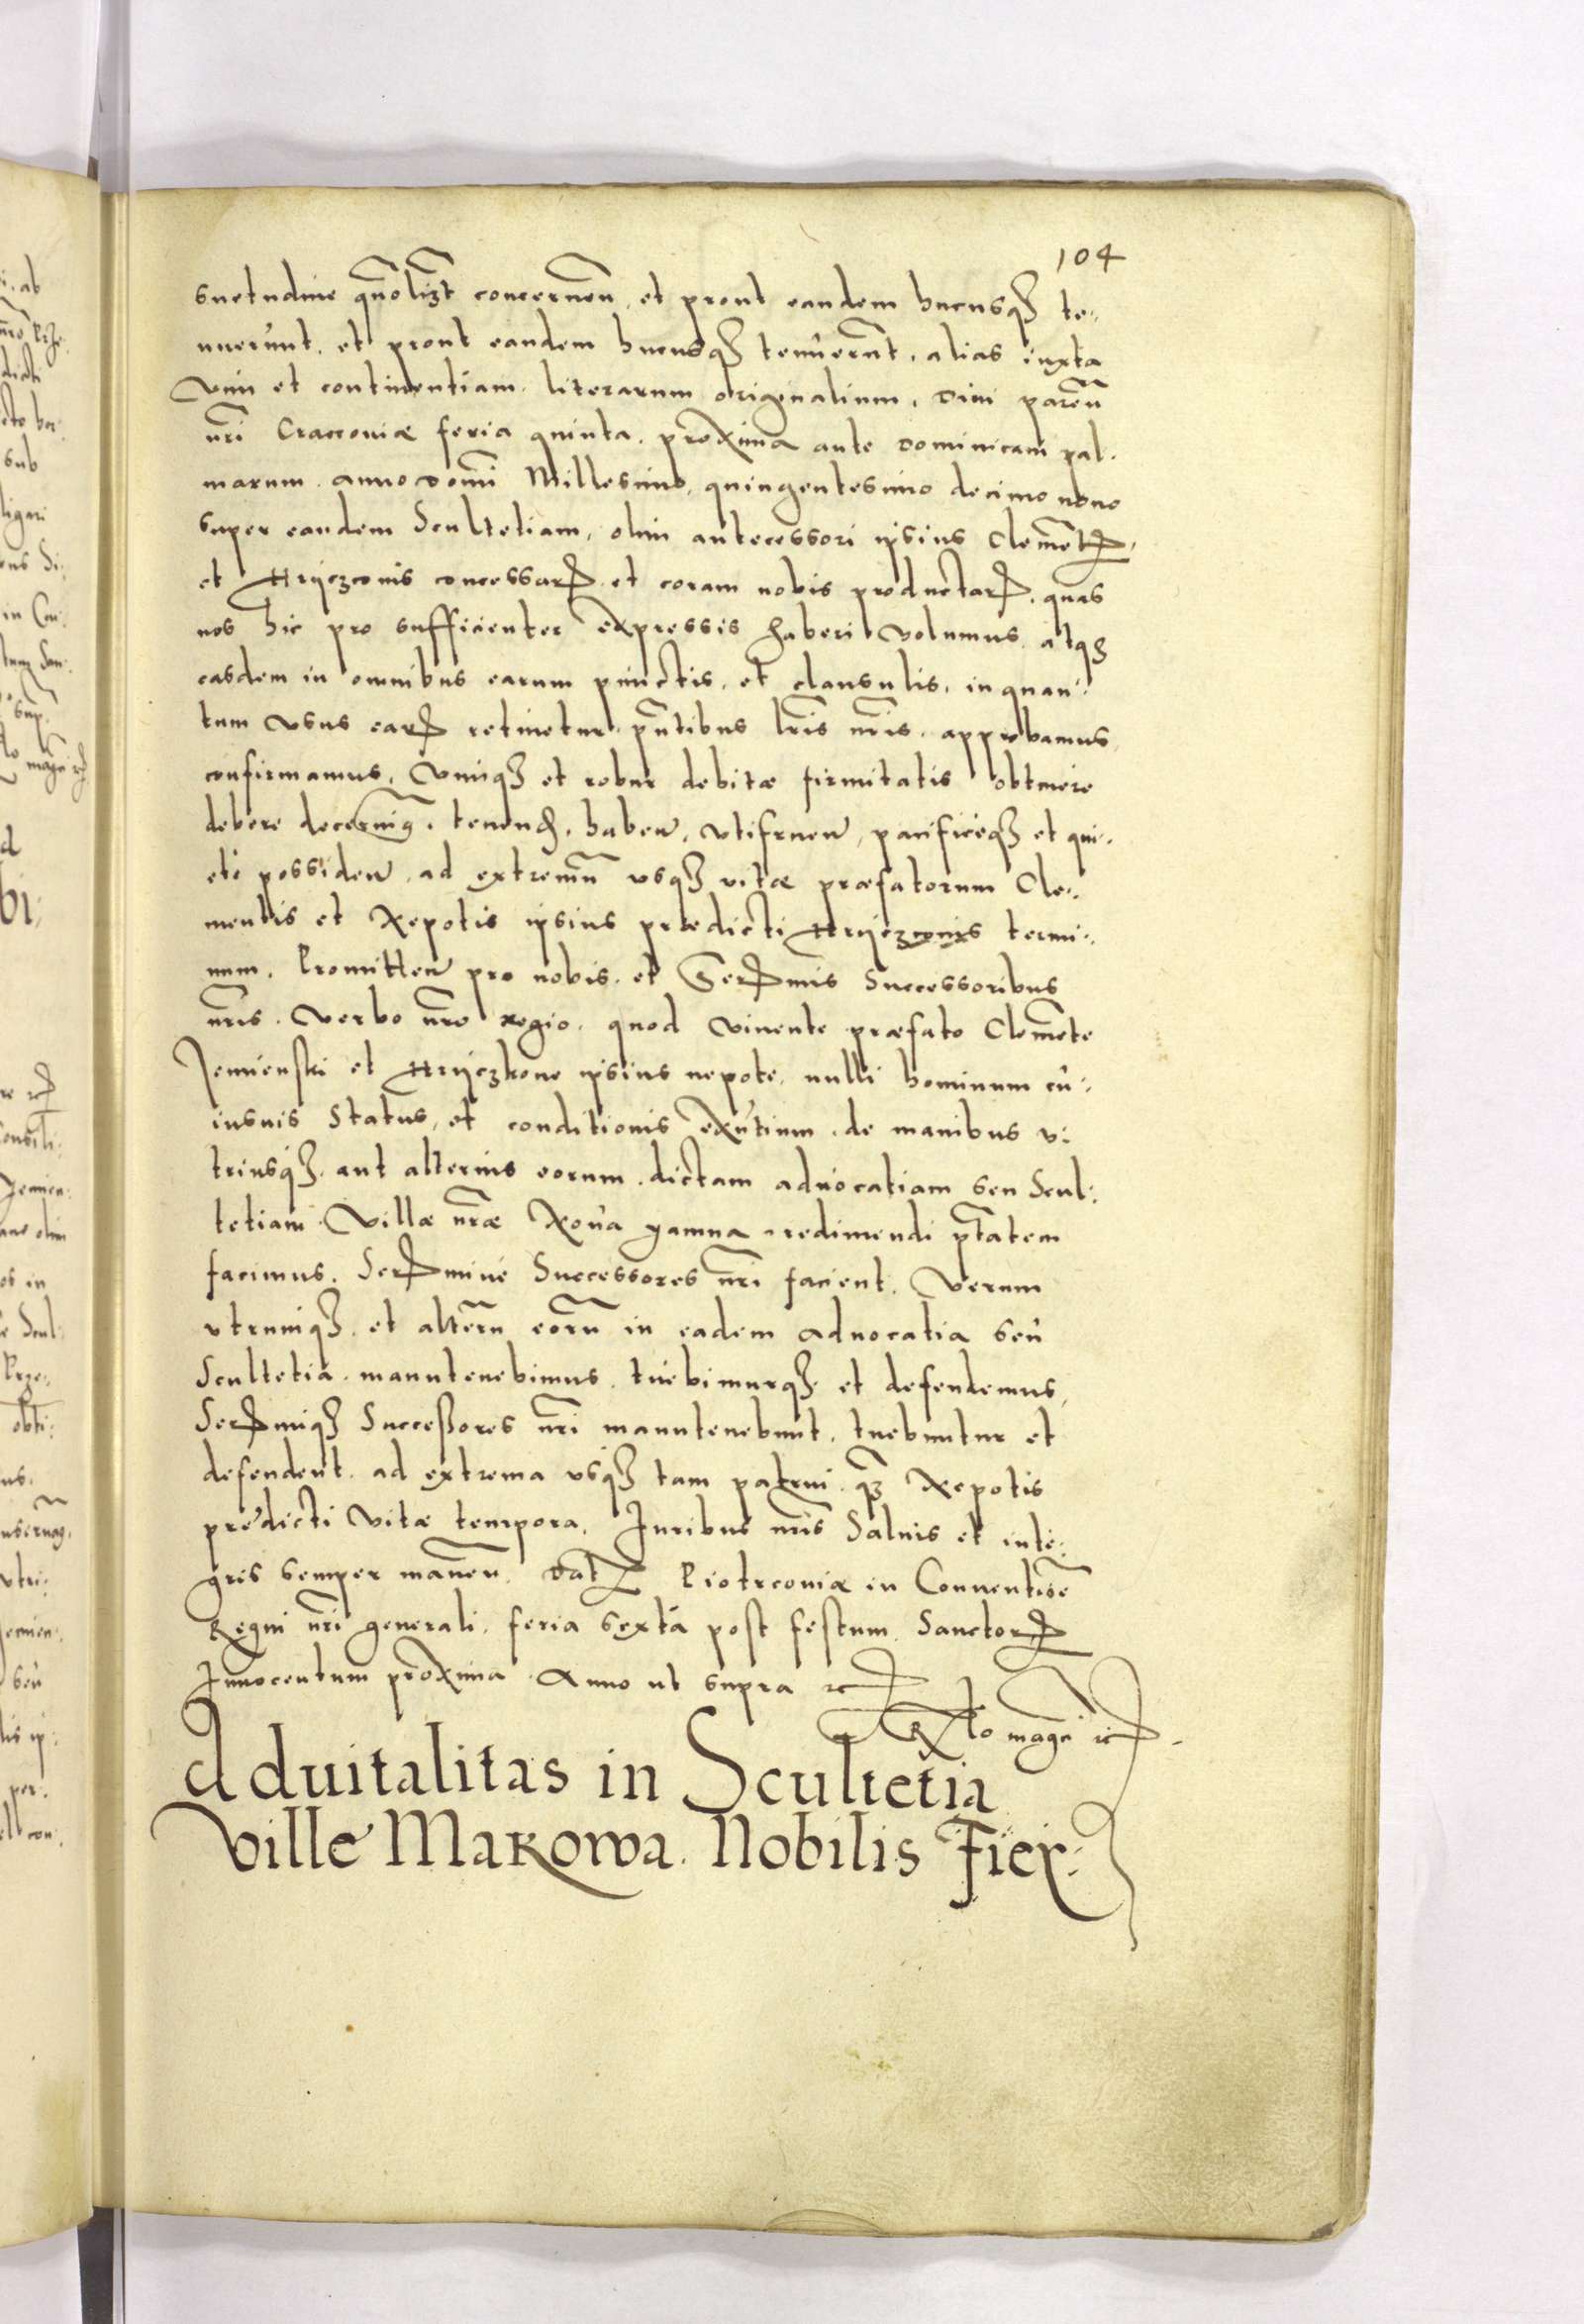 104
suetudine quõlizt concernen̄, et prout eandem hucusqꝫ te-
nuerunt, et prout eandem hucusqꝫ tenuerunt, alias iuxta
vim et continentiam literarum originalium, Divi parēn
nr̄i Cracoviæ feria quinta proxima ante Dominicam pal-
marum anno Domī Millesimo, quingentesimo decimo nono
super eandem Scultetiam, olim antecessori ipsius Clemētꝝ,
et Hryczconis concessarꝝ et coram nobis productarꝝ, quas
nos hic pro sufficienter expressis haberi volumus, atqꝫ
easdem in omnibus earum punctis, et clausulis, in quan-
tum usus earꝝ retinetur, pn̄tibus lr̄is nr̄is, approbamus
confirmamus, vimqꝫ et robur debitæ firmitatis obtinere
debere decernimꝰ, tenend, haben̄, utifruen̄, pacificeqꝫ et qui-
ete possiden̄, ad extremū usqꝫ vitæ præfatorum Cle-
mentis et Nepotis ipsius prædicti Hryczconis termi-
num. Promitten̄ pro nobis, et Serꝝmis Successoribus
nr̄is, verbo nr̄o regio, quod vivente præfato Clemēte
Jemienski et Hryczkone ipsius nepote, nulli hominum cu-
iusvis status, et conditionis exn̄tium, de manibus u-
triusqꝫ, aut alterius eorum, dictam advocatiam seu Scul-
tetiam Villæ nr̄æ Nova Jamna, redimendi ptātem
faciemus, Serꝝmive Successores nr̄i facient. Verum
utrumqꝫ, et altērū eorū in eadem advocatia seu
Scultetia manutenebimus, tuebimurqꝫ et defendemus,
Serꝝmiqꝫ Successores nr̄i manutenebunt, tuebuntur et
defendent, ad extrema usqꝫ tam patrui, qꝫ Nepotis
prædicti vitæ tempora. Juribus nr̄is Salvis et inte-
gris semper manēn. Dat Piotrcoviæ in Conventiōe
Regni nr̄i generali, feria sexta post festum Sanctorꝝ
Innocentum proxima Anno ut supra
Advitalitas in Scultetia
ville Makowa. Nobilis Fier-